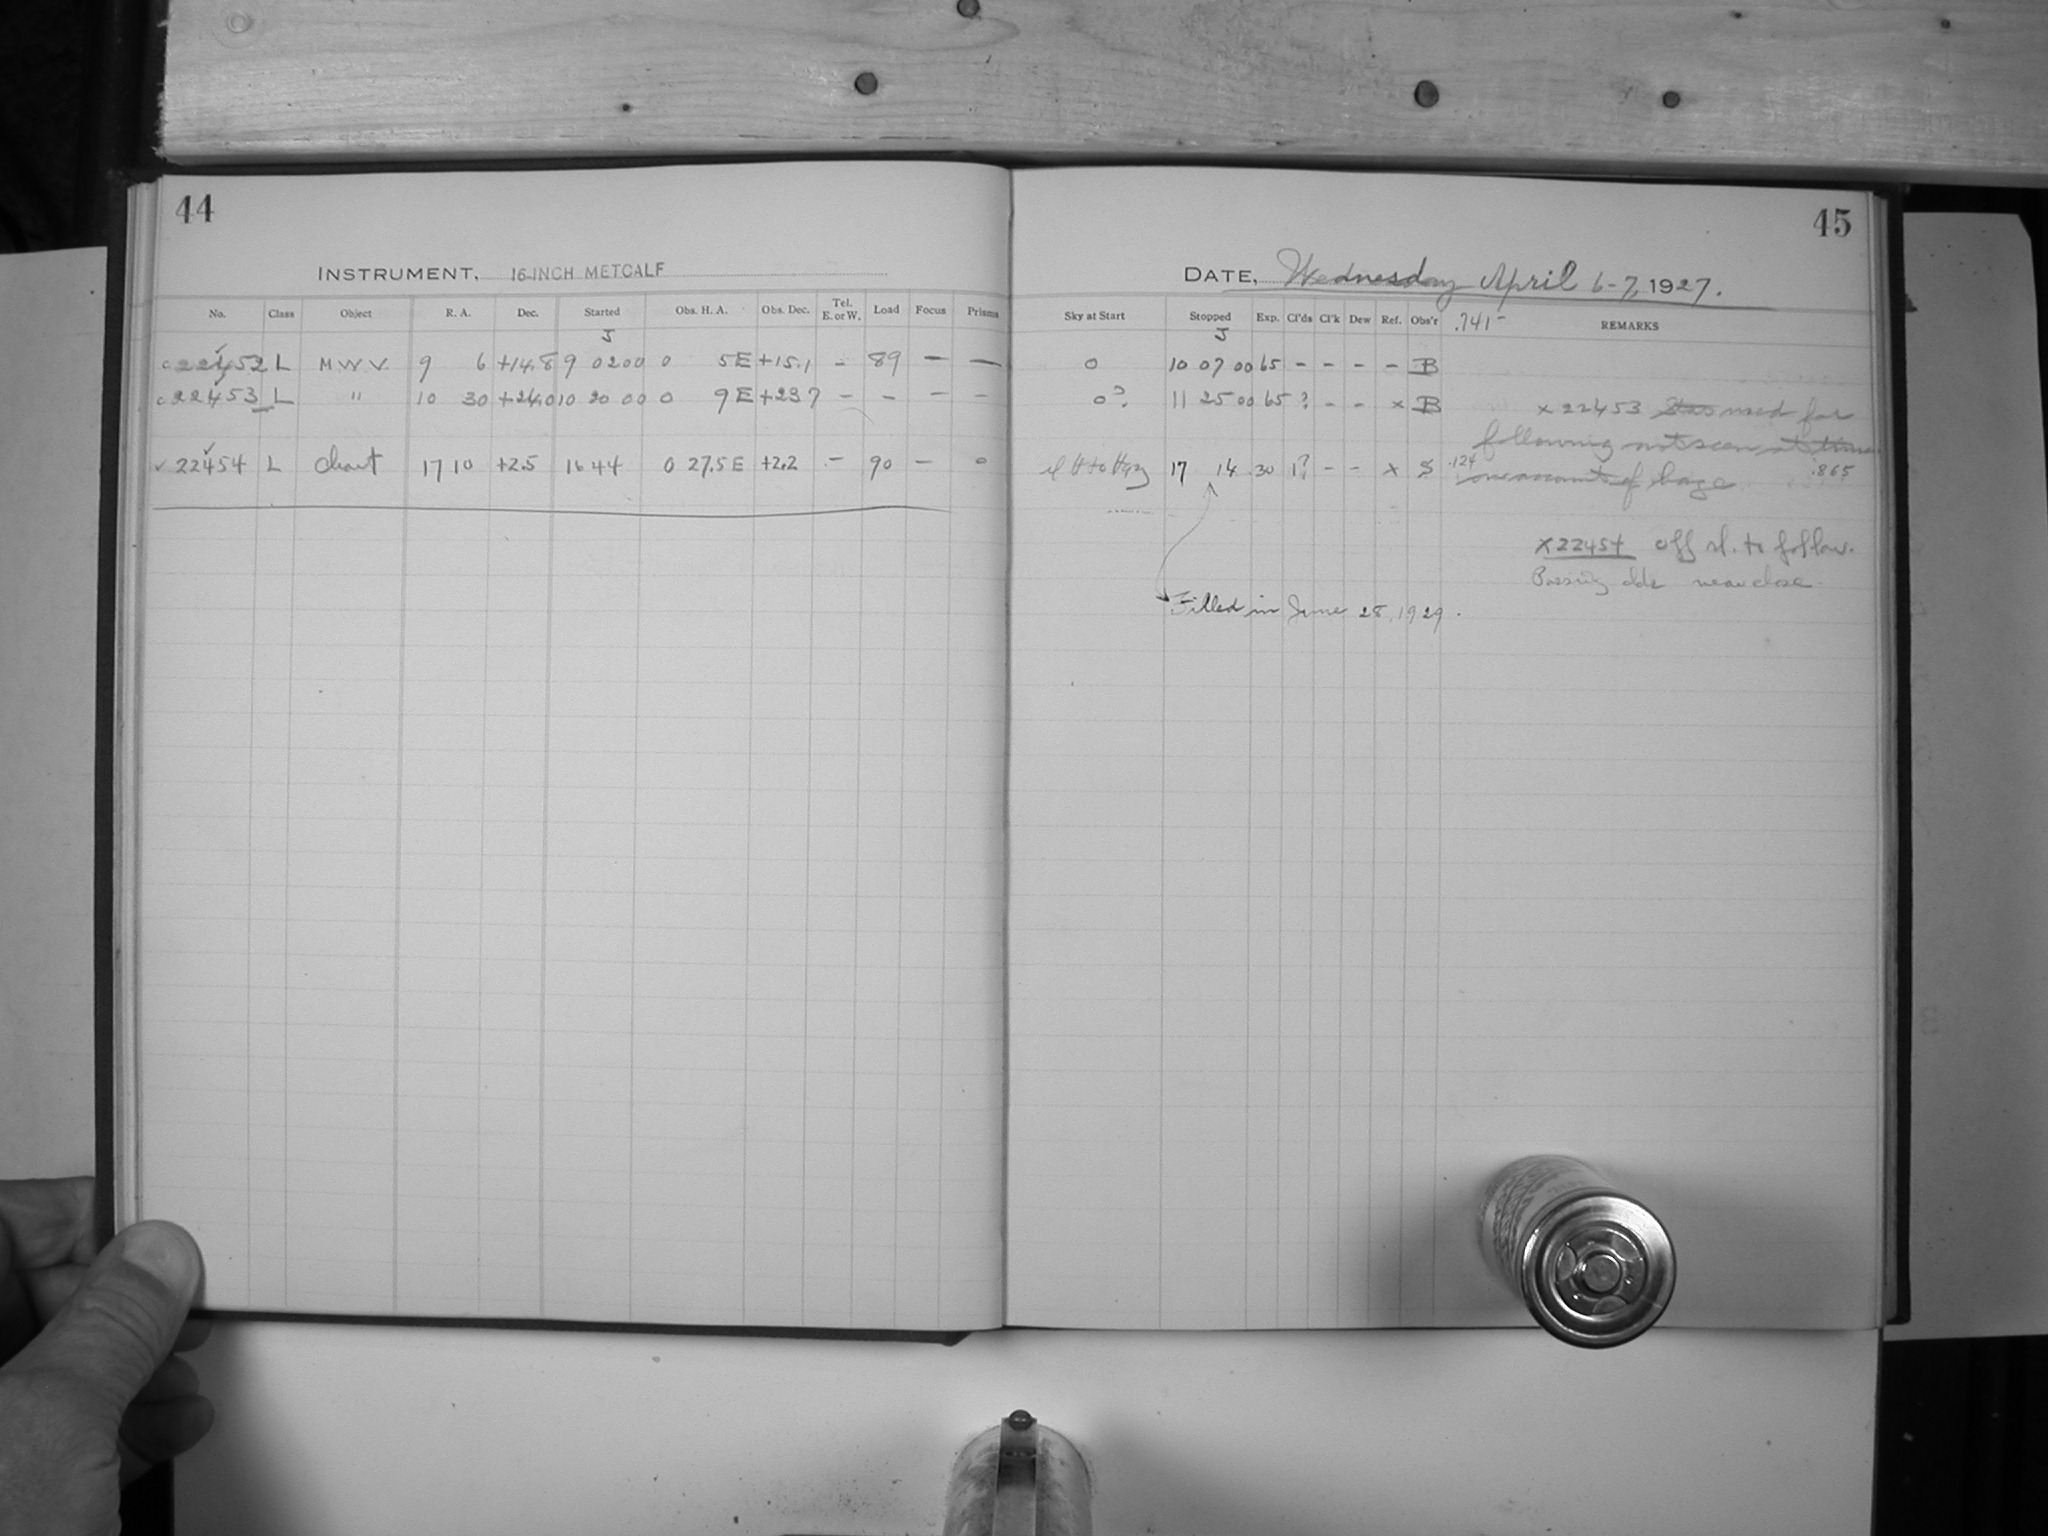 44
INSTRUMENT, 16-INCH METCALF
No. Class Object R. A. Dec. Started Obs. H. A. Obs. Dec. Tel. E. or W. Load Focus Prisms
c22452 L M.W.V. 9 6 +14.8 9 02 00 0 5 E +15.1 - 89 - -
c22453 L " 10 30 +24.0 10 20 00 0 9 E +23.7 - - - -
✓ 22454 L chart 17 10 +2.5 16 44 0 27.5 E +2.2 - 90 - 0
45
DATE, Wednesday April 6-7, 1927.
Sky at Start Stopped Exp. Cl'ds Cl'k Dew Ref. Obs'r .741- REMARKS
0 10 07 00 65 - - - - B
0? 11 25 00 65 ? - - x B
17 14 30 1? - - x S
x 22453 Star used for
following not seen at
on account of haze
.124 .865
x 22454 off sl. to follow.
Passing clds near close.
Filled in June 28, 1929.